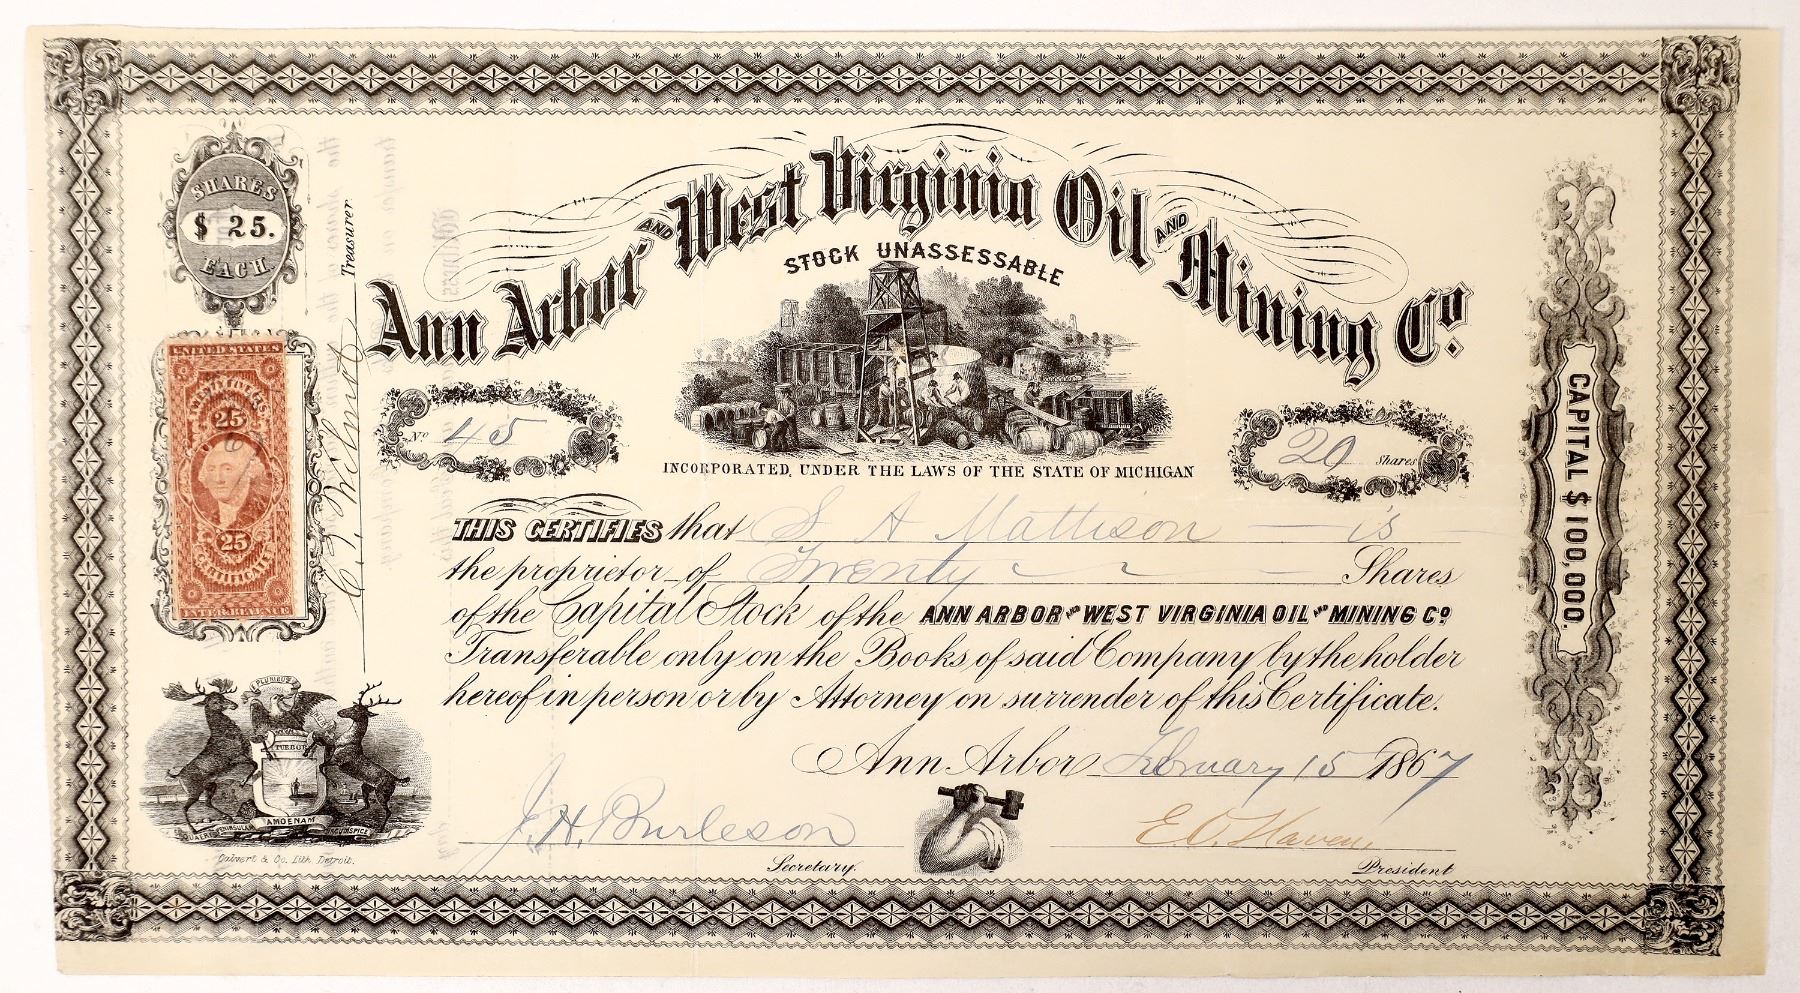 SHARES
$ 25.
EACH.
Treasurer
Ann Arbor AND West Virginia Oil AND Mining Co.
STOCK UNASSESSABLE
No 45
20 Shares
INCORPORATED, UNDER THE LAWS OF THE STATE OF MICHIGAN
UNITED STATES
25
25
CERTIFICATE
INTER. REVENUE
THIS CERTIFIES that S A Mattison is
the proprietor of Twenty Shares
of the Capital Stock of the ANN ARBOR AND WEST VIRGINIA OIL AND MINING CO
Transferable only on the Books of said Company by the holder
hereof in person or by Attorney on surrender of this Certificate.
Ann Arbor February 15 1867
J. H. Burleson
Secretary.
E. O. Haven
President
CAPITAL $ 100,000.
PLURIBUS
TUEBOR
AMOENAM
CIRCUMSPICE
Calvert & Co. Lith. Detroit.